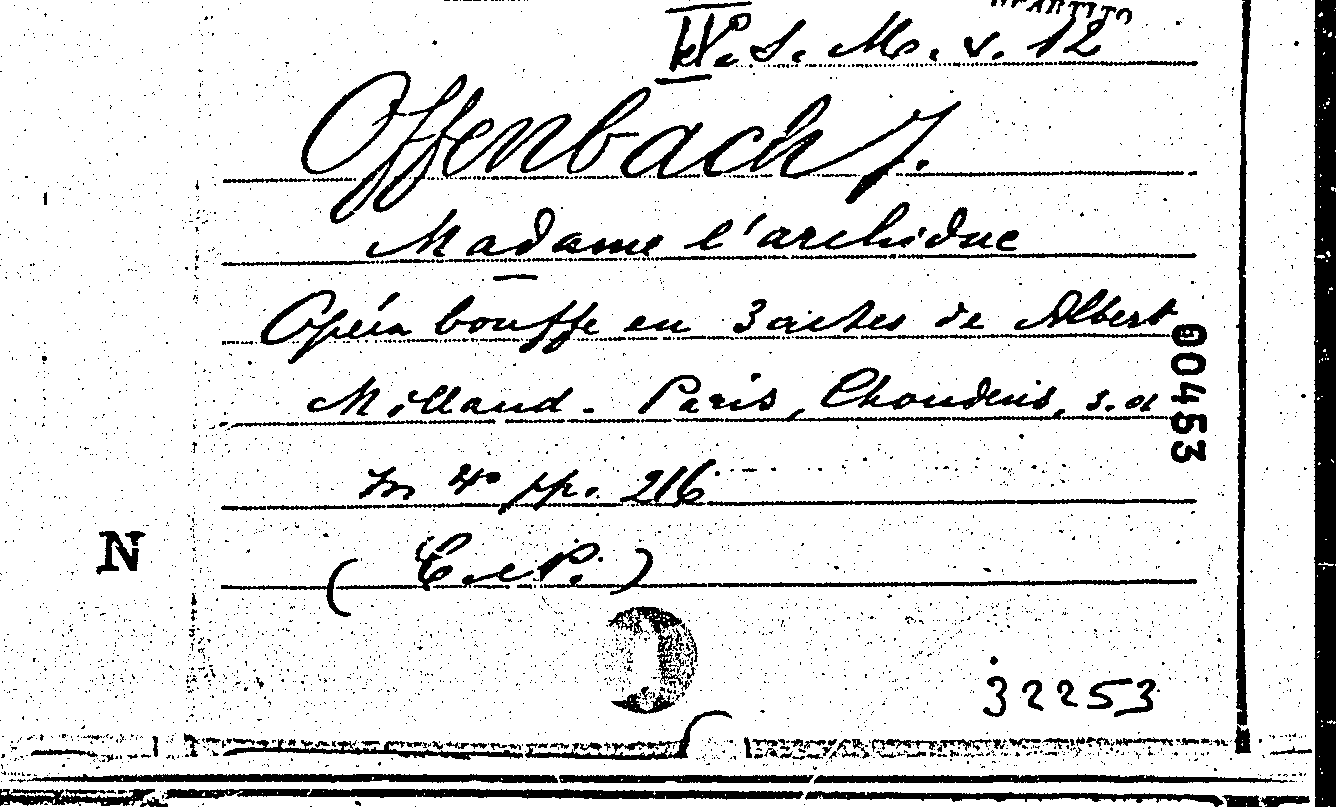 S. M. v. 12
Offenbach J.
Madame l'archiduc
Opéra bouffe en 3 actes de Albert
Millaud - Paris, Choudens, s. a
00453
in 4° pp. 216
N
( C. e P. )
32253